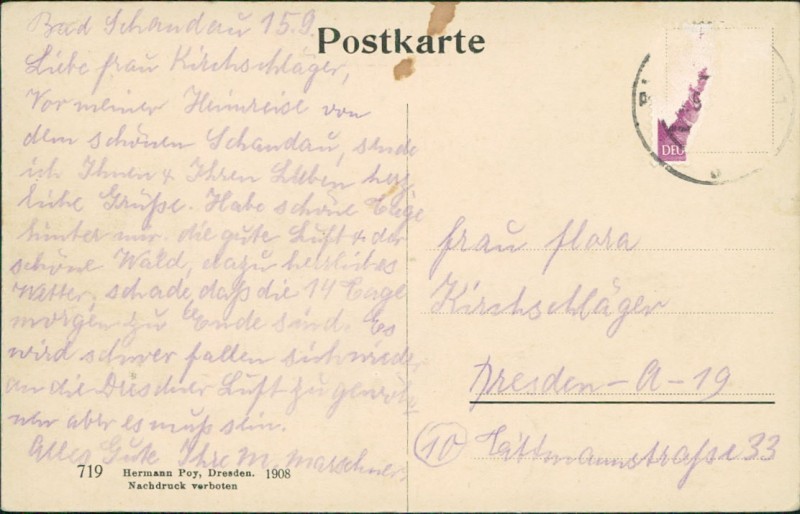 Bad Schandau 15.9.
Postkarte
Liebe Frau Kirchschläger,
Vor meiner Heimreise von
dem schönen Schandau, sende
ich Ihnen & Ihren Lieben herz
liche Grüße. Habe schöne Tage
hinter mir. die gute Luft & der
schöne Wald, dazu herrliches
Wetter, schade, daß die 14 Tage
morgen zu Ende sind. Es
wird schwer fallen sich wieder
an die Dresdner Luft zu gewöh
nen aber es muß sein.
Alles Gute Ihre M. Marschner
719 Hermann Poy, Dresden. 1908
Nachdruck verboten
DEU
Frau Flora
Kirchschläger
Dresden-A-19
(10) Tittmannstraße 33